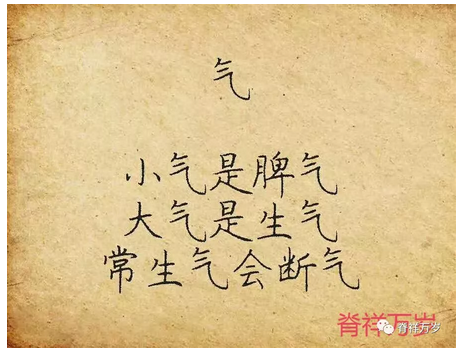 气
小气是脾气
大气是生气
常生气会断气
脊祥万岁
脊祥万岁